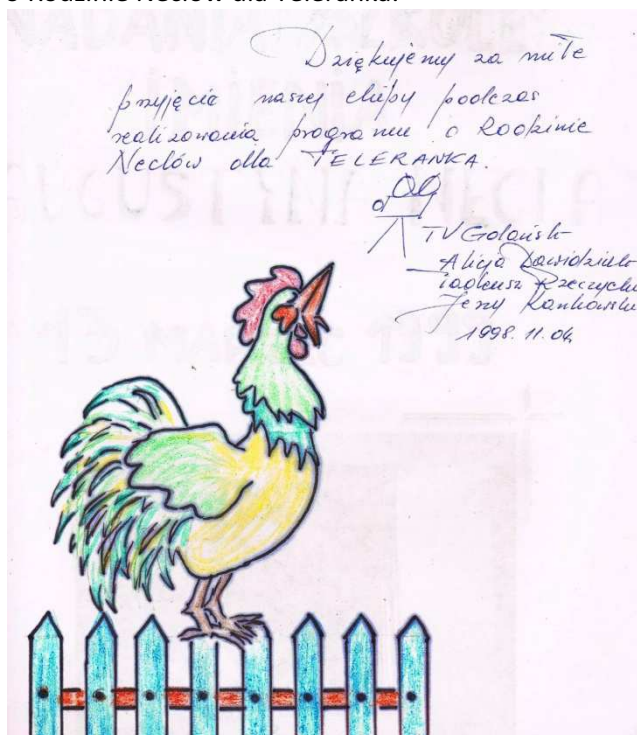 o Rodzinie Neclów dla Teleranka.
Dziękujemy za miłe
przyjęcie naszej ekipy podczas
realizowania programu o Rodzinie
Neclów dla TELERANKA.
TV Gdańsk
Alicja
Tadeusz Rzeczycki
Jerzy Rankowski
1998. 11. 04.